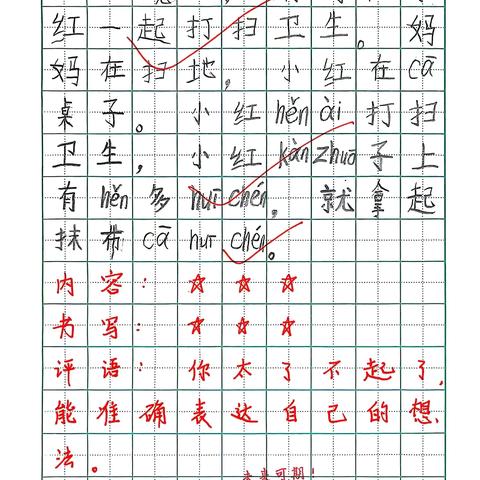 红一起打扫卫生。妈
妈在扫地，小红在cā
桌子。小红hěn ài打扫
卫生，小红kàn zhuō子上
有hěn多huī chén，就拿起
抹布cā huī chén。
内容：☆☆☆
书写：☆☆☆
评语：你太了不起了，
能准确表达自己的想
法。
未来可期！